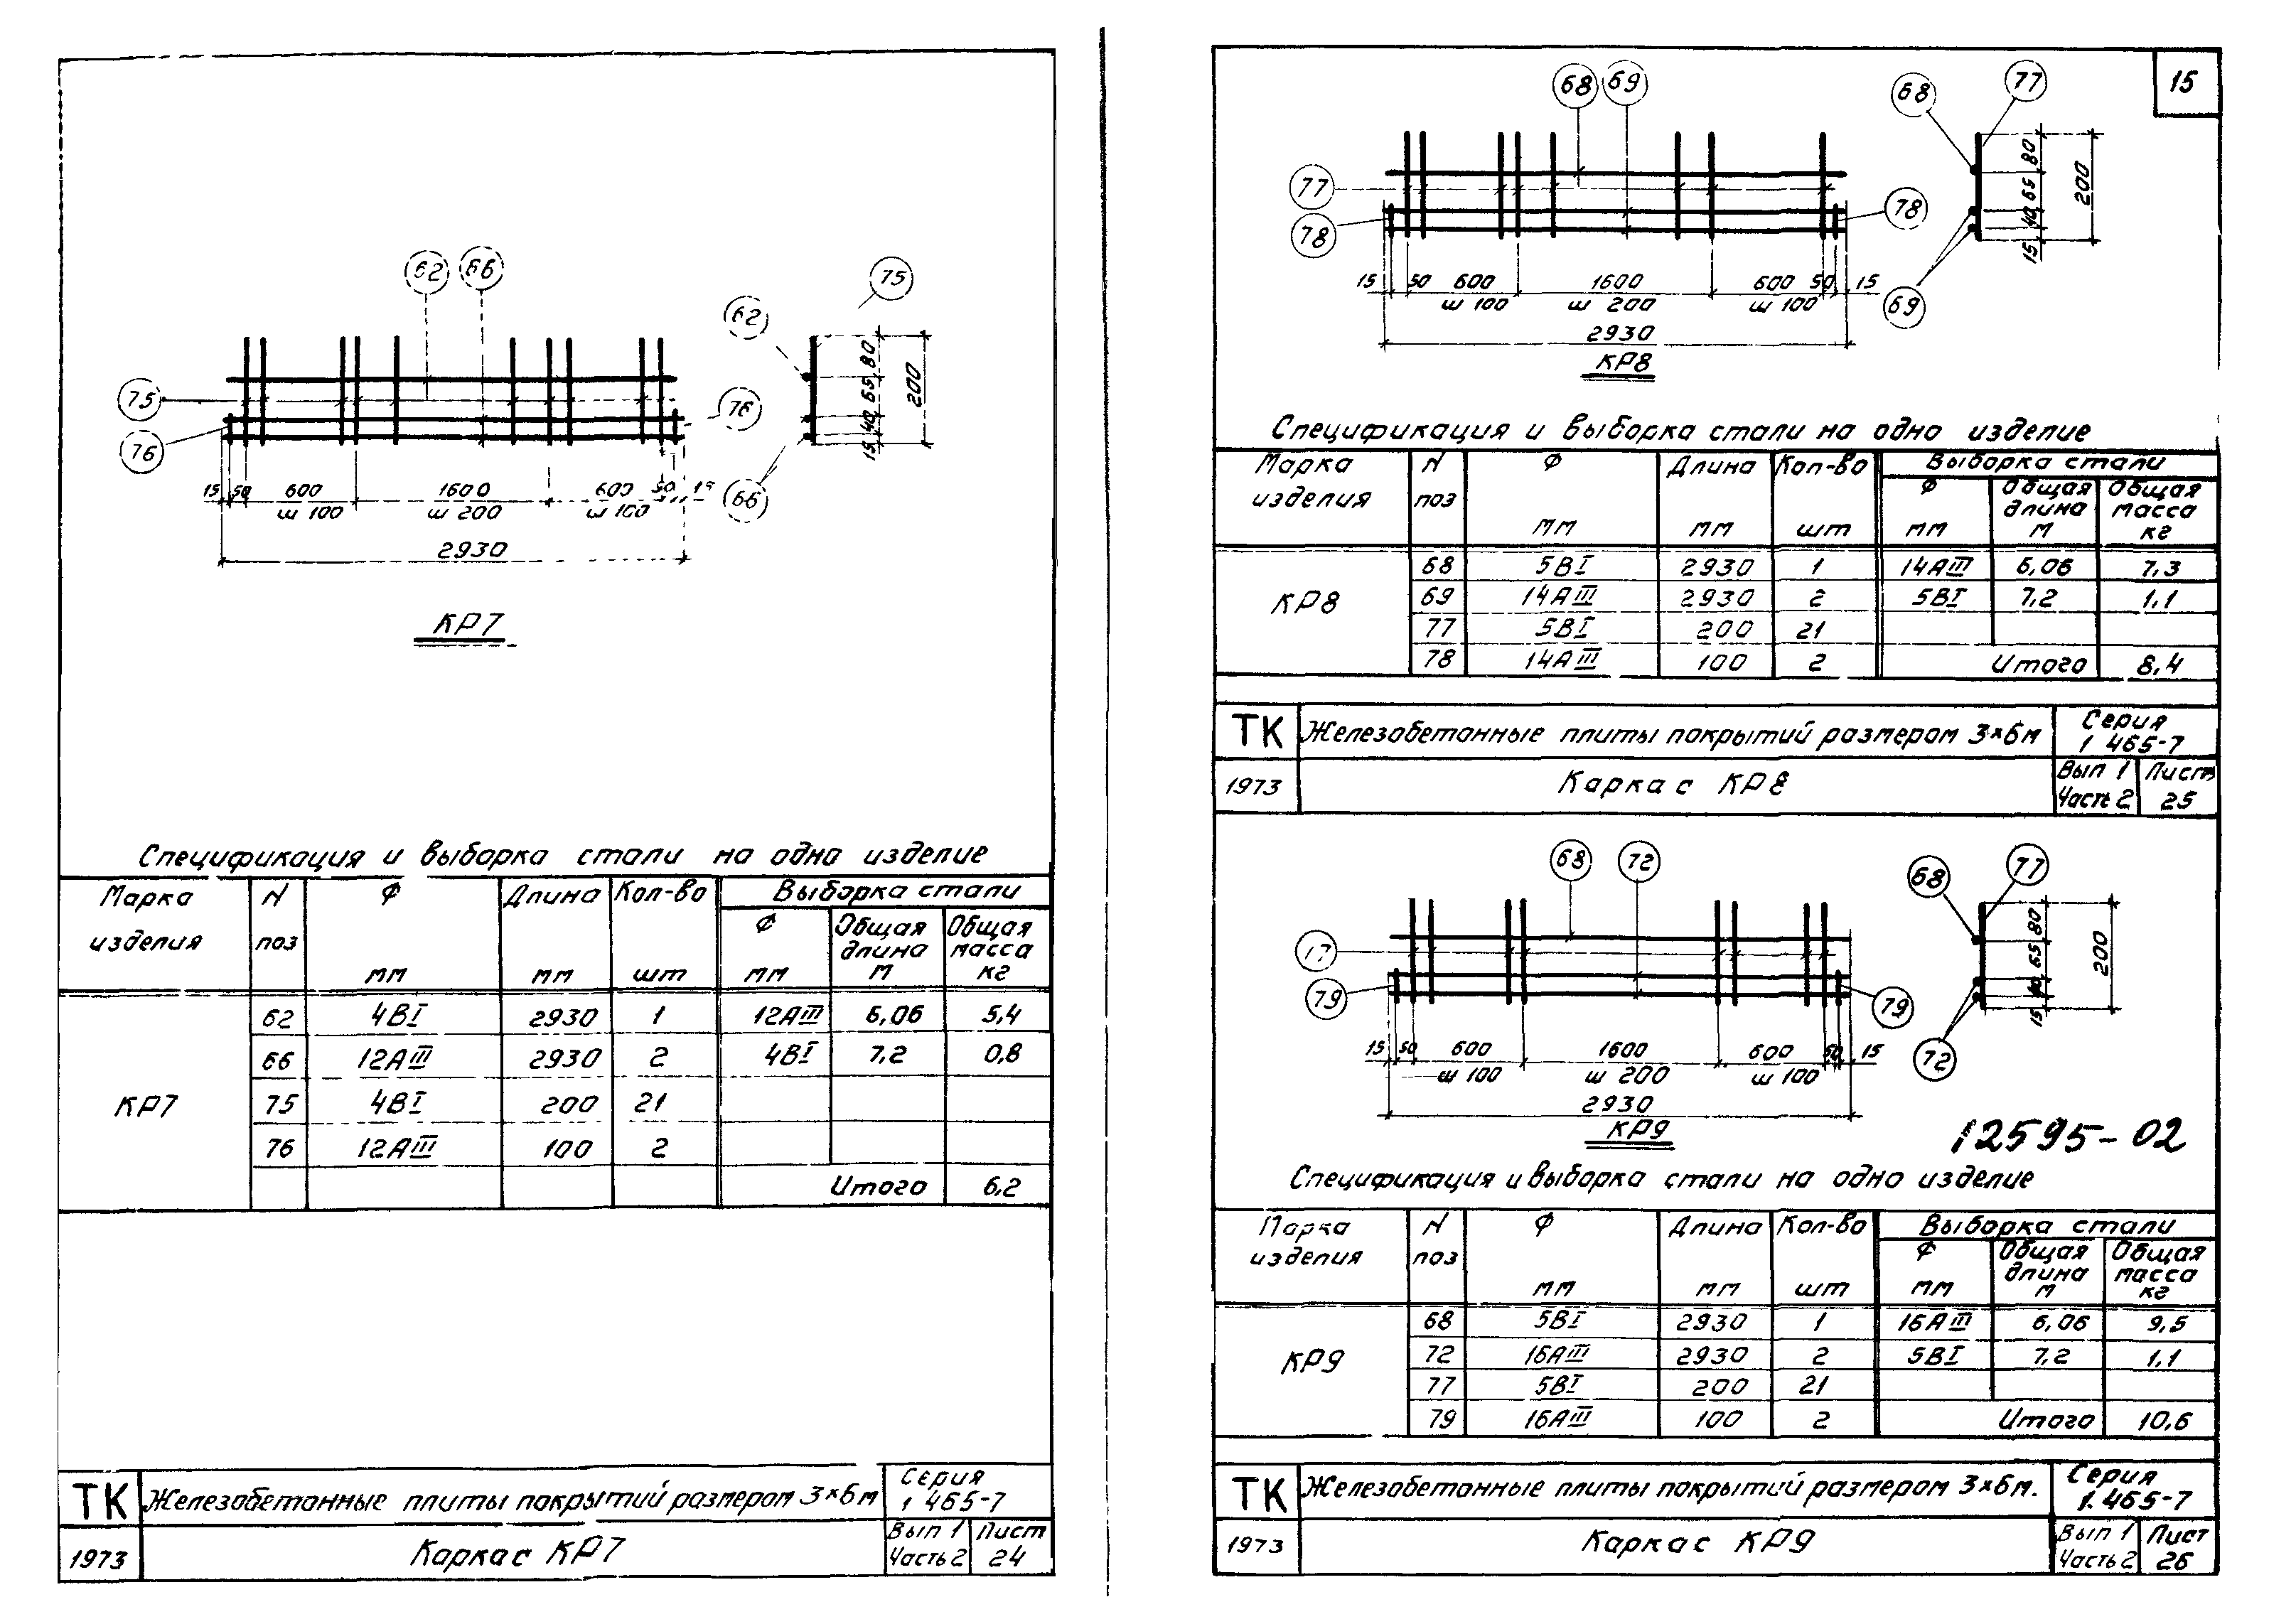 62 66 75
62
75 76
76
66
80
65
40
15
200
15 50 600 1600 600 50 15
ш 100 ш 200 ш 100
2930
КР7
Спецификация и выборка стали на одно изделие
Марка изделия N поз Ф мм Длина мм Кол-во шт Выборка стали
Ф мм Общая длина м Общая масса кг
62 4ВI 2930 1 12АIII 6,06 5,4
66 12АIII 2930 2 4ВI 7,2 0,8
КР7 75 4ВI 200 21
76 12АIII 100 2
Итого 6,2
ТК Железобетонные плиты покрытий размером 3×6м Серия 1 465-7
1973 Каркас КР7 Вып 1 Часть 2 Лист 24
15
68 69 68 77
77
78 78
69
80
65
40
15
200
15 50 600 1600 600 50 15
ш 100 ш 200 ш 100
2930
КР8
Спецификация и выборка стали на одно изделие
Марка изделия N поз Ф мм Длина мм Кол-во шт Выборка стали
Ф мм Общая длина м Общая масса кг
68 5ВI 2930 1 14АIII 6,06 7,3
КР8 69 14АIII 2930 2 5ВI 7,2 1,1
77 5ВI 200 21
78 14АIII 100 2 Итого 8,4
ТК Железобетонные плиты покрытий размером 3×6м Серия 1 465-7
1973 Каркас КР8 Вып 1 Часть 2 Лист 25
68 72 68 77
17
79 79
72
80
65
40
15
200
15 50 600 1600 600 50 15
ш 100 ш 200 ш 100
2930
КР9
12595-02
Спецификация и выборка стали на одно изделие
Марка изделия N поз Ф мм Длина мм Кол-во шт Выборка стали
Ф мм Общая длина м Общая масса кг
68 5ВI 2930 1 16АIII 6,06 9,5
КР9 72 16АIII 2930 2 5ВI 7,2 1,1
77 5ВI 200 21
79 16АIII 100 2 Итого 10,6
ТК Железобетонные плиты покрытий размером 3×6м. Серия 1.465-7
1973 Каркас КР9 Вып 1 Часть 2 Лист 26